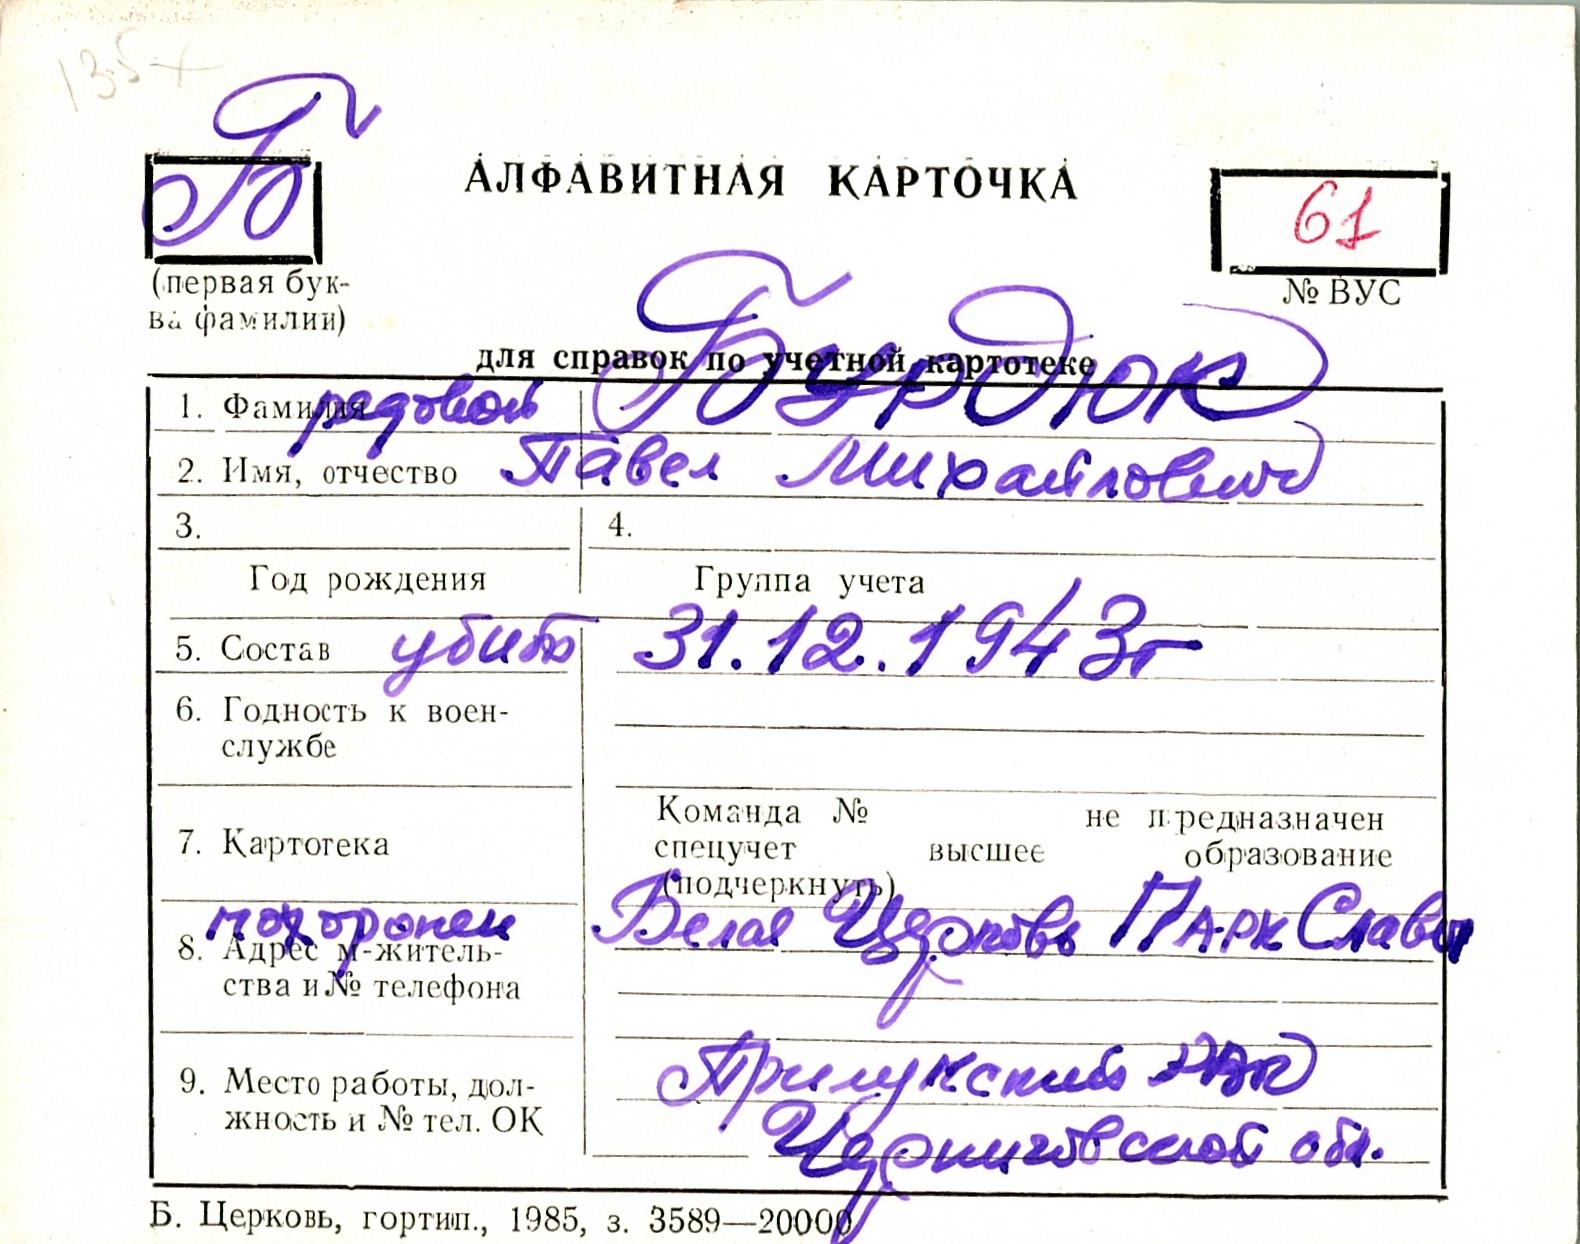 135
Б
АЛФАВИТНАЯ КАРТОЧКА
61
(первая бук-
ва фамилии)
№ ВУС
для справок по учетной картотеке
1. Фамилия рядовой Бурдюк
2. Имя, отчество Павел Михайлович
3. 4.
Год рождения Группа учета
5. Состав убит 31.12.1943г
6. Годность к воен-
службе
Команда № не предназначен
7. Картотека
спецучет высшее образование
(подчеркнуть)
похоронен Белая Церковь Парк Славы
8. Адрес м-житель-
ства и № телефона
Прилукский РВК
9. Место работы, дол-
жность и № тел. ОК
Черниговской обл.
Б. Церковь, гортип., 1985, з. 3589—20000